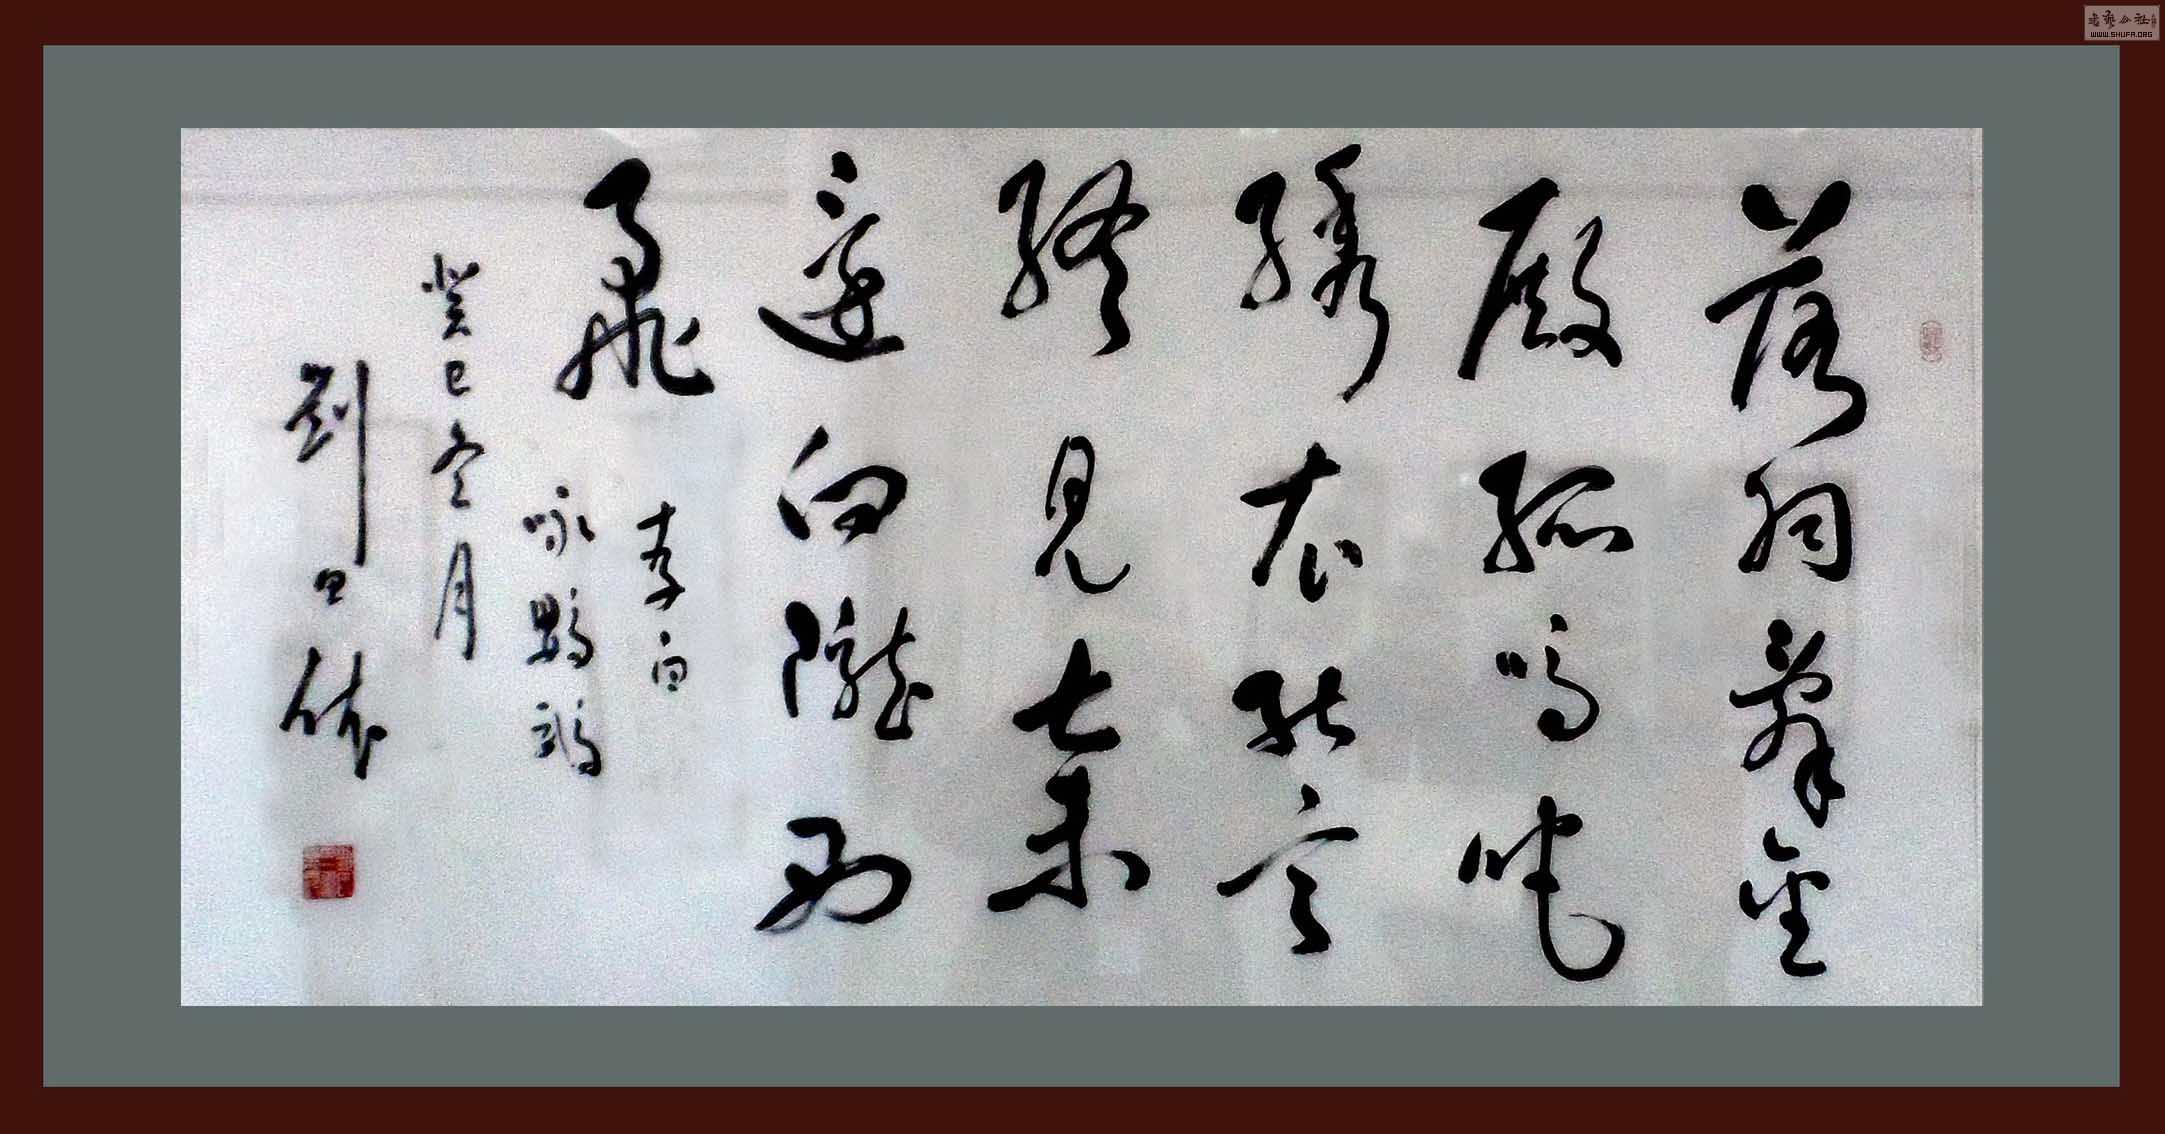 落羽辭金
殿孤鳴吒
繡衣能言
終見棄
還向隴西
飛
李白
咏鸚鵡
癸巳冬月
劉日
書藝公社
WWW.SHUFA.ORG